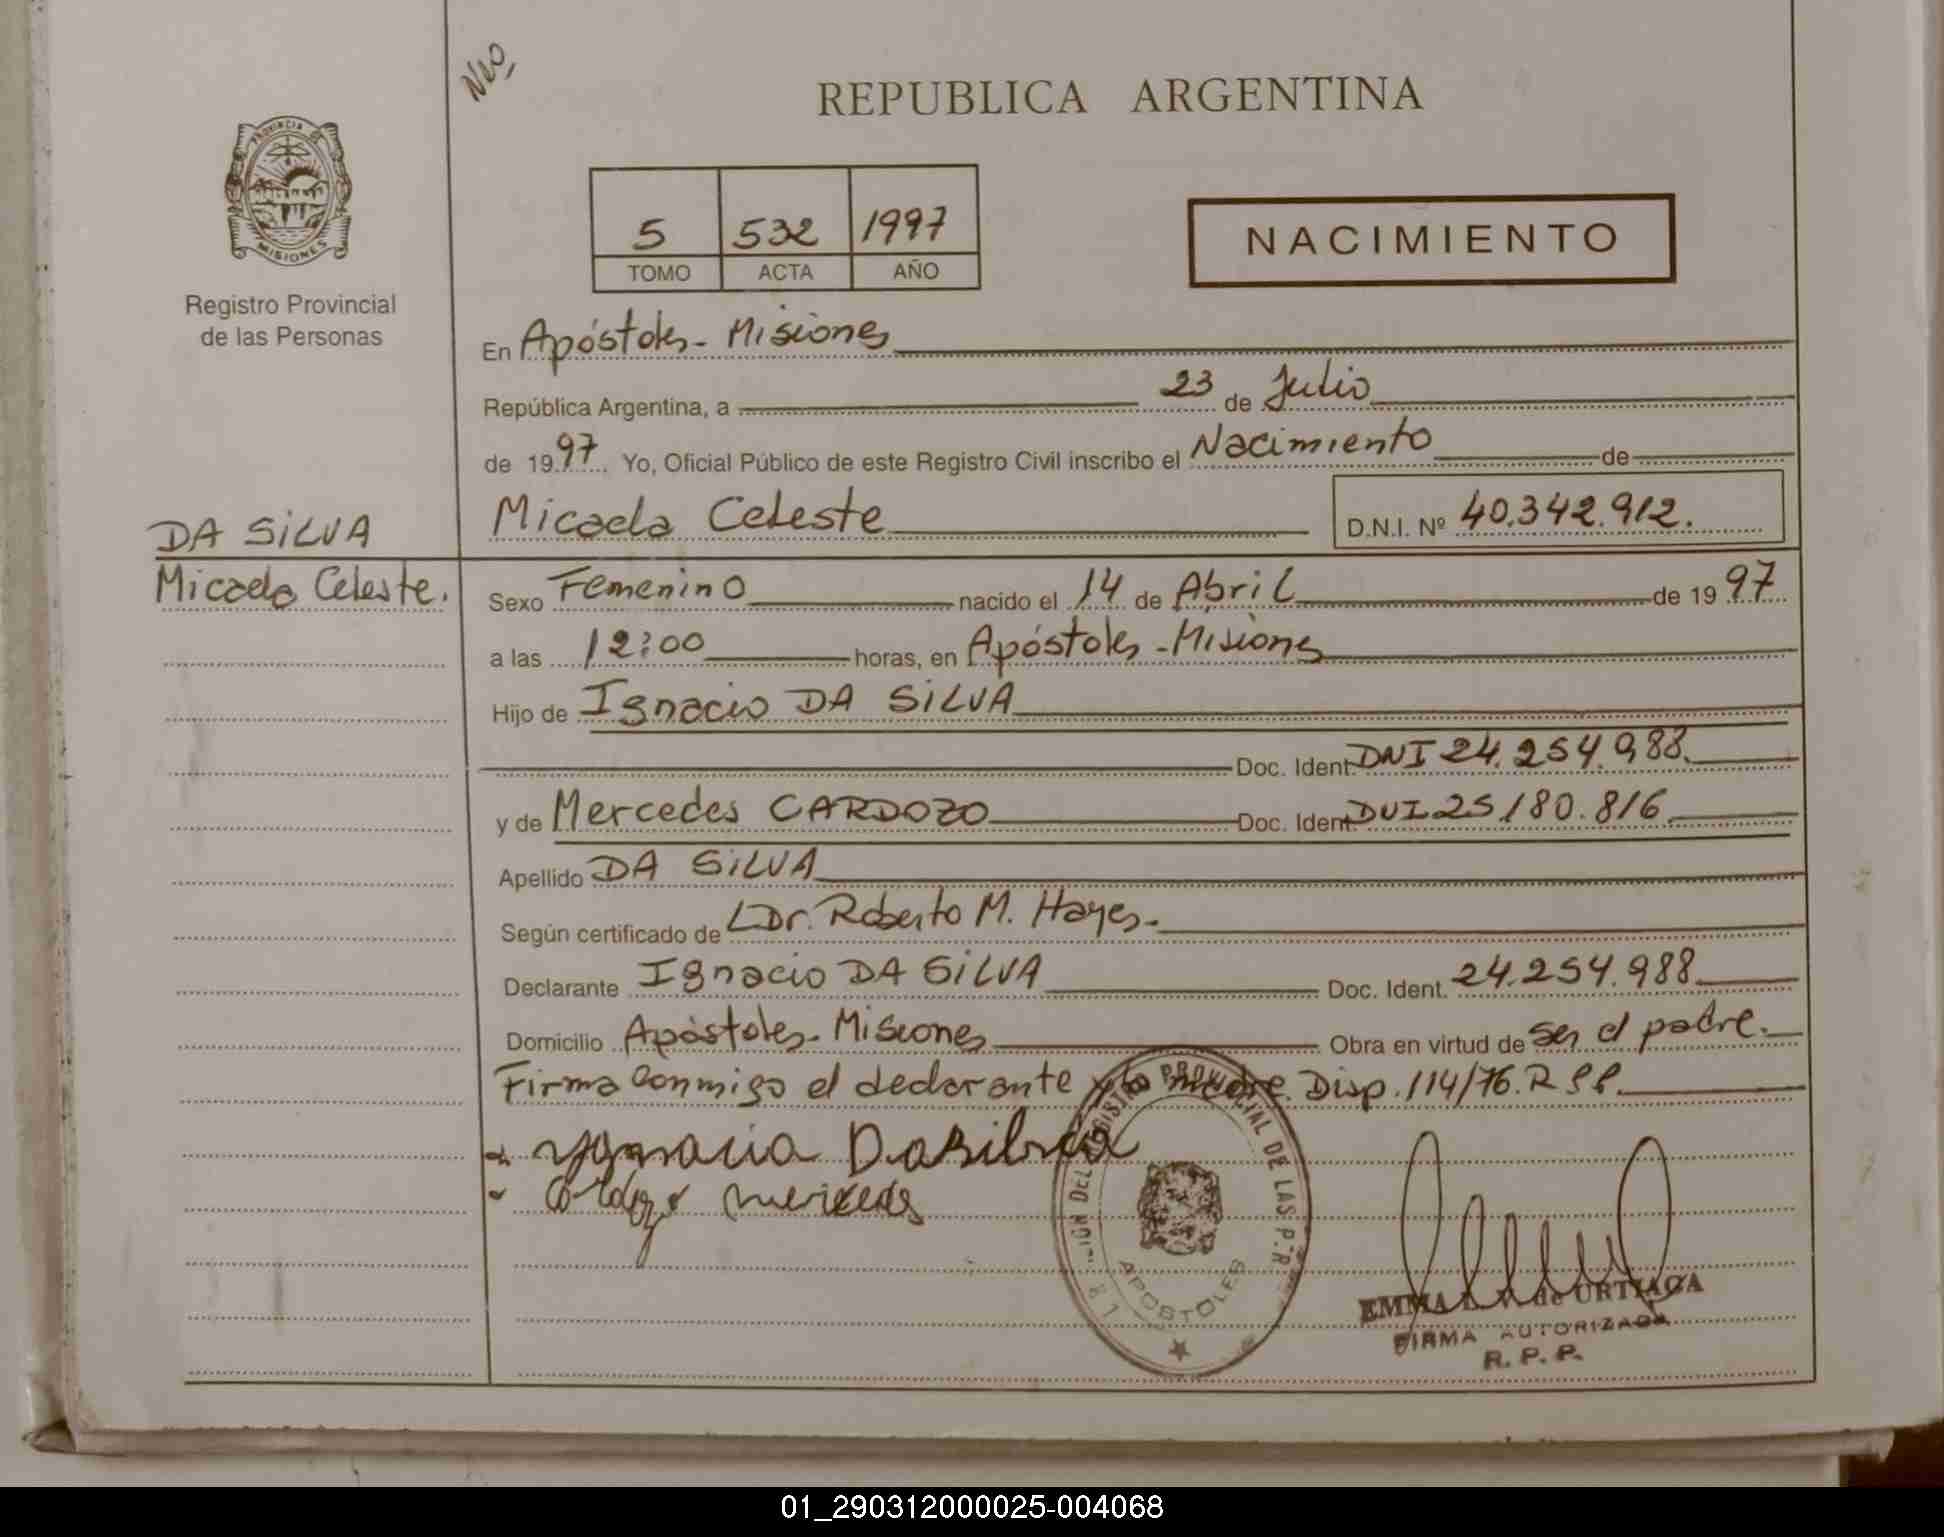 Nro,
REPUBLICA ARGENTINA
PROVINCIA DE
MISIONES
Registro Provincial
de las Personas
5 532 1997
TOMO ACTA AÑO
NACIMIENTO
En Apóstoles - Misiones
República Argentina, a 23 de Julio
de 1997. Yo, Oficial Público de este Registro Civil inscribo el Nacimiento de
Micaela Celeste D.N.I. Nº 40.342.912.
DA SILVA
Micaela Celeste.
Sexo Femenino nacido el 14 de Abril de 1997
a las 12:00 horas, en Apóstoles - Misiones
Hijo de Ignacio DA SILVA
Doc. Ident. DNI 24.254.988.
y de Mercedes CARDOZO Doc. Ident. DUI 25.180.816
Apellido DA SILVA
Según certificado de Dr. Roberto M. Hayes-
Declarante Ignacio DA SILVA Doc. Ident. 24.254.988
Domicilio Apóstoles - Misiones Obra en virtud de ser el padre.
Firma conmigo el declarante y la madre. Disp. 114/76.
DEL REGISTRO PROVINCIAL DE LAS P.
APOSTOLES
EMMA de URTIAGA
FIRMA AUTORIZADA
R. P. P.
01_290312000025-004068